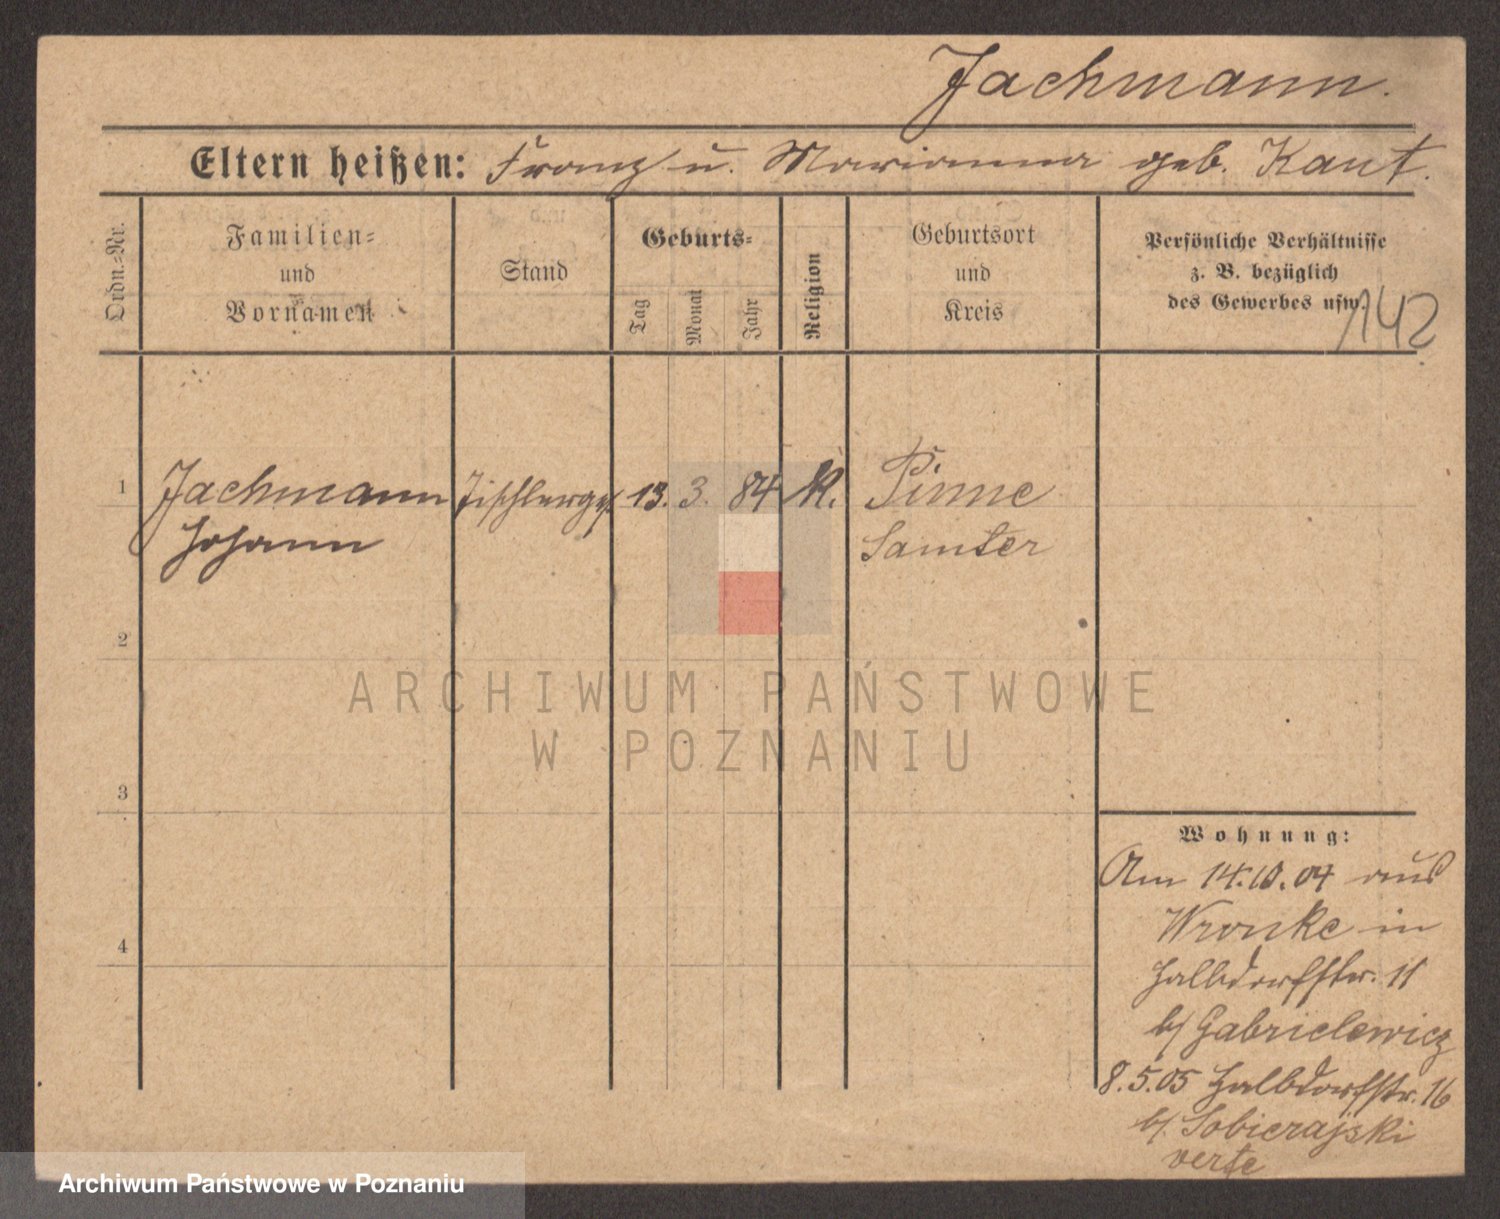 Jachmann.
Eltern heißen: Franz u. Marianna geb. Kaut.
Ordn.-Nr.
Familien-
und
Vornamen
Stand
Geburts-
Tag
Monat
Jahr
Religion
Geburtsort
und
Kreis
Persönliche Verhältnisse
z. B. bezüglich
des Gewerbes usw.
142
1 Jachmann Tischlerges. 13. 3. 84 K. Pinne
Johann Samter
2
ARCHIWUM PAŃSTWOWE
W POZNANIU
3
Wohnung:
Am 14.10.04 aus
Wronke in
4
Halbdorfstr. 11
b/ Gabrielewicz
8.5.05 Halbdorfstr. 16
b/ Sobierajski
verte
Archiwum Państwowe w Poznaniu